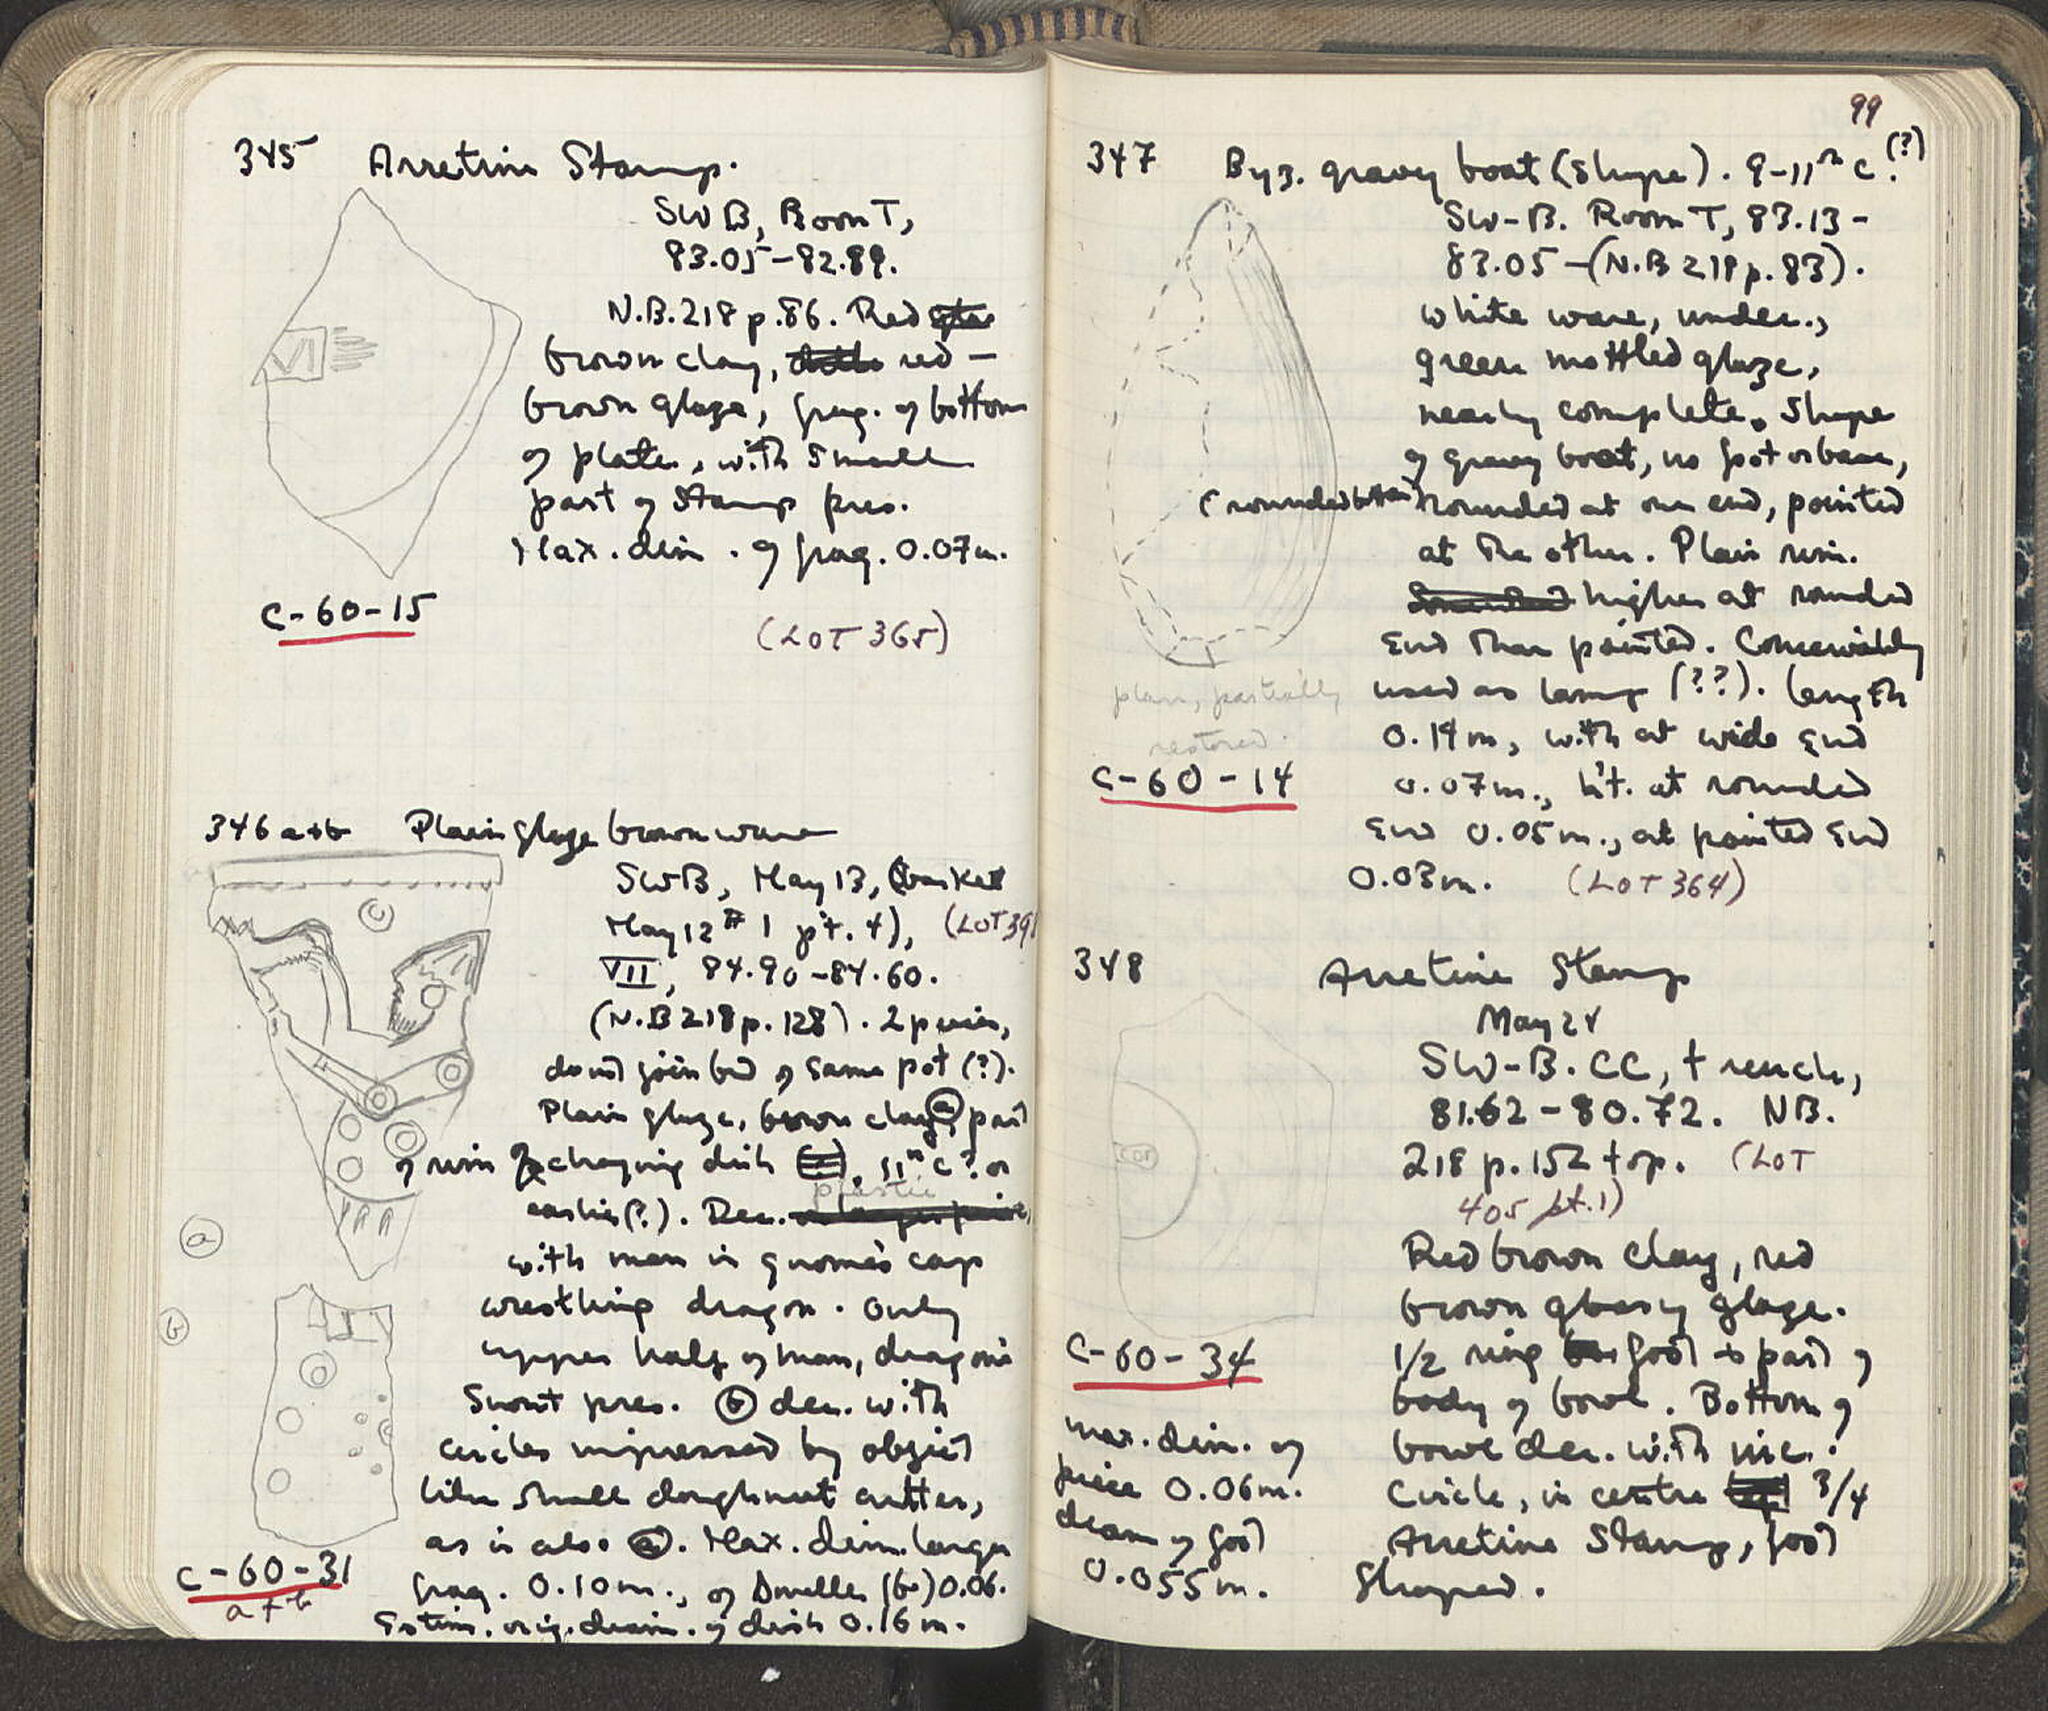 345 Arretine Stamp.
SW B, Room T,
83.05-82.89.
N.B. 218 p.86. Red
brown clay, red-
brown glaze, frag. of bottom
of plate, with small
part of stamp pres.
Max. dim. of frag. 0.07m.
C-60-15
(LOT 365)
VI
346 a+b Plain glaze brown ware
SWB, May 13, (basket
May 12 # 1 pt. 4), (LOT 391
VII, 84.90-84.60.
(N.B 218 p. 128). 2 pieces,
don't join but of same pot (?).
Plain glaze, brown clay, (a) part
of rim of chafing dish, 11th c? or
plastic
earlier (?). Dec.
with man in gnome's cap
wrestling dragon. Only
upper half of man, dragon's
snout pres. (b) dec. with
circles impressed by object
like small doughnut cutter,
as is also (a). Max. dim. larger
frag. 0.10m., of smaller (b) 0.06.
Estim. orig. diam. of dish 0.16m.
a
b
C-60-31
a+b
99
347 Byz. gravy boat (shape). 9-11th c.(?)
SW-B. Room T, 83.13-
83.05-(N.B 218 p.83).
White ware, under.,
green mottled glaze,
nearly complete. Shape
of gravy boat, no foot or base,
(rounded bottom) rounded at one end, pointed
at the other. Plain rim.
higher at rounded
end than pointed. Conceivably
used as lamp (??). Length
0.14m, with at wide end
0.07m., h't. at rounded
end 0.05m., at pointed end
0.03m. (LOT 364)
plan, partially
restored.
C-60-14
348 Arretine Stamp
May 24
SW-B. CC, trench,
81.62-80.72. NB.
218 p. 152 top. (LOT
405 pt.1)
Red brown clay, red
brown glassy glaze.
1/2 ring foot + part of
body of bowl. Bottom of
bowl dec. with inc.
circle, in centre 3/4
Arretine Stamp, foot
shaped.
COR
C-60-34
max. dim. of
piece 0.06m.
diam of foot
0.055m.